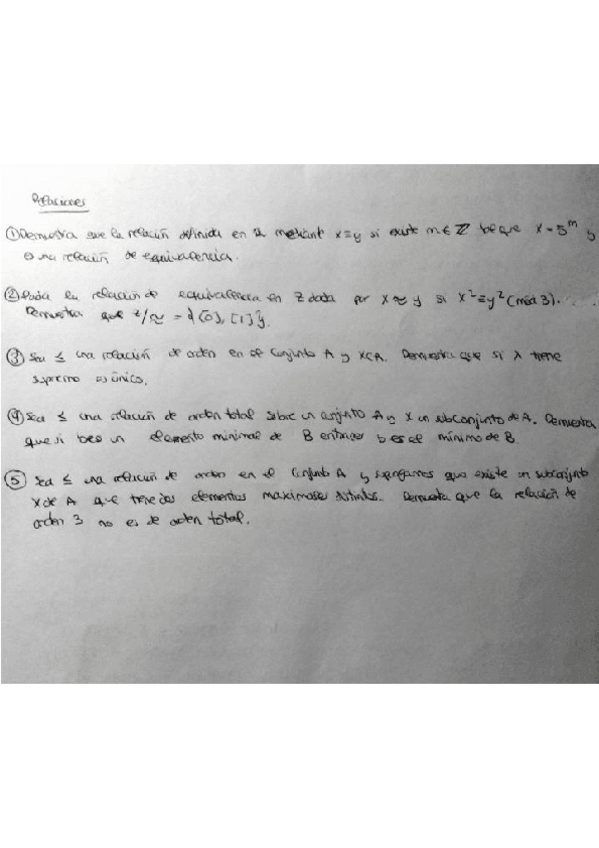 Relaciones
① Demuestra que la relación definida en Z mediante x≡y si existe m∈Z tal que x=5^m y
es una relación de equivalencia.
② Dada la relación de equivalencia en Z dada por x≈y si x²≡y² (mód 3).
Demuestra que Z/≈ = {[0], [1]}.
③ Sea ≤ una relación de orden en el conjunto A y X⊂A. Demuestra que si X tiene
supremo es único.
④ Sea ≤ una relación de orden total sobre un conjunto A y X un subconjunto de A. Demuestra
que si b es un elemento minimal de B entonces b es el mínimo de B.
⑤ Sea ≤ una relación de orden en el conjunto A y supongamos que existe un subconjunto
X de A que tiene dos elementos maximales distintos. Demuestra que la relación de
orden 3 no es de orden total.